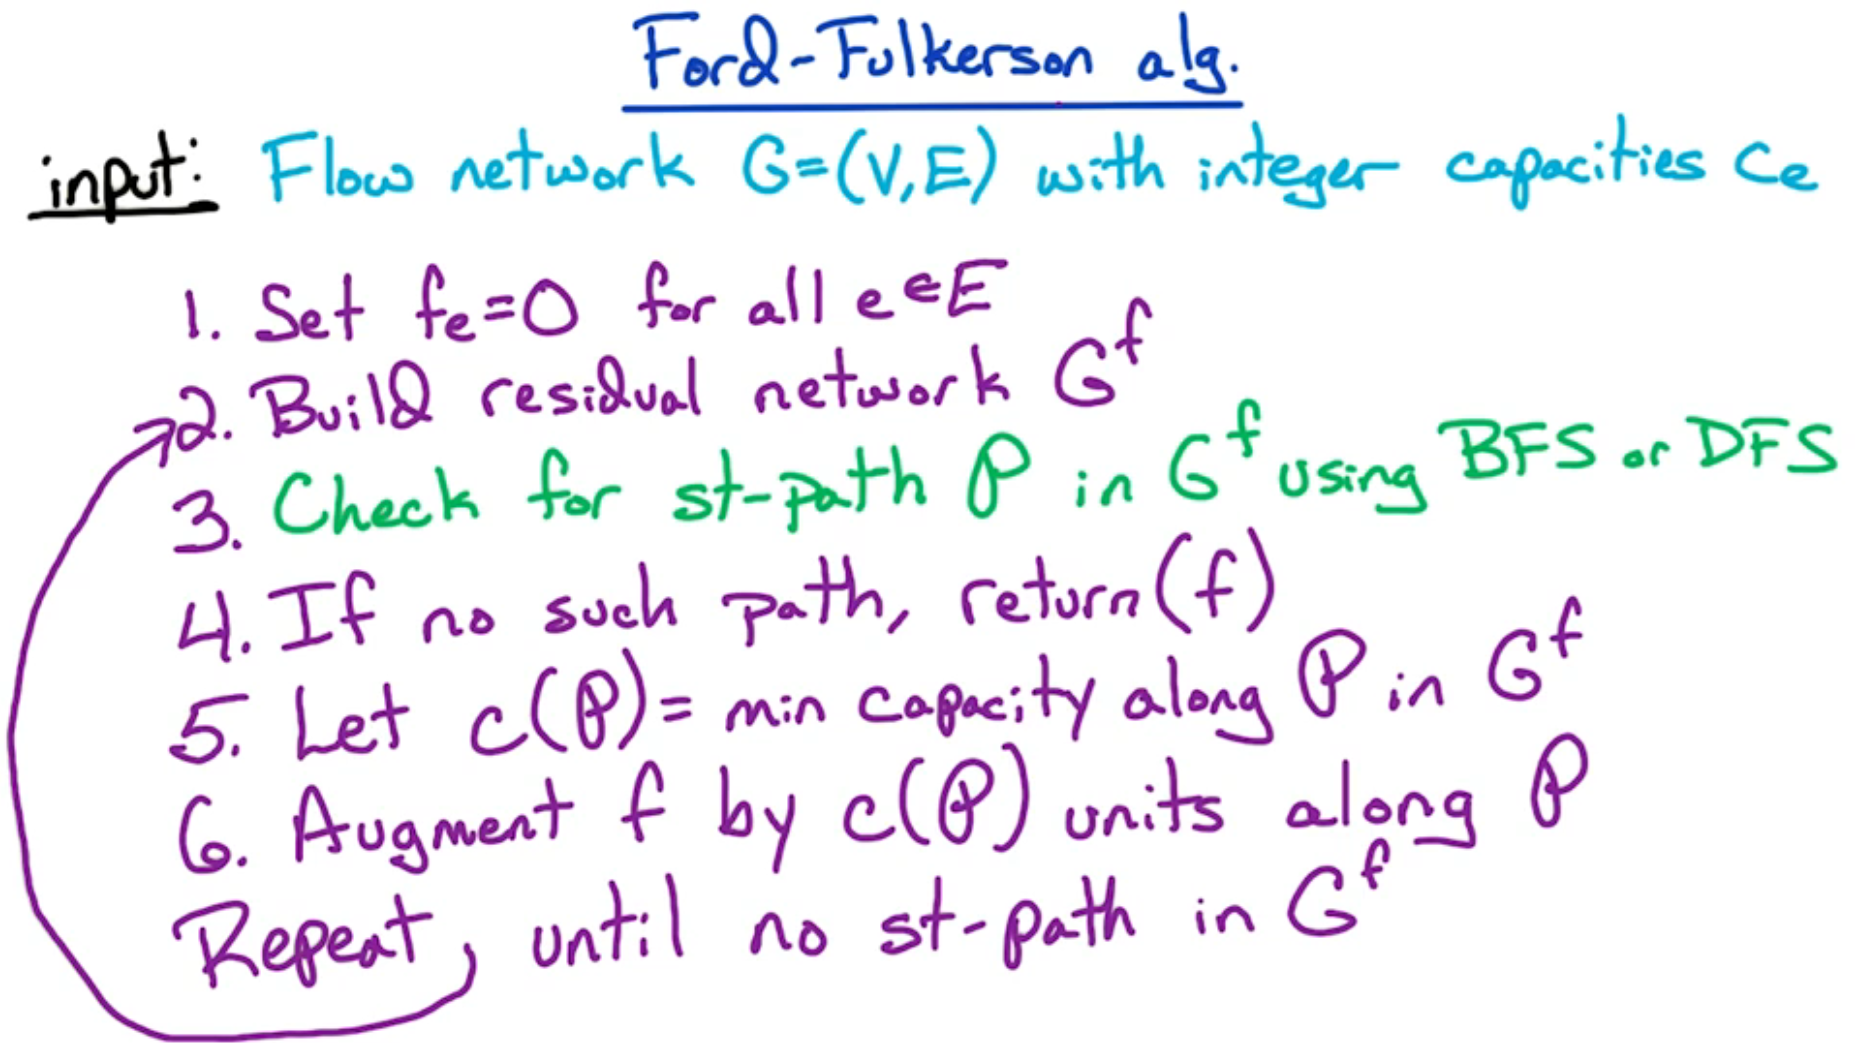 Ford-Fulkerson alg.
input: Flow network G=(V,E) with integer capacities Ce
1. Set fe=0 for all e∈E
2. Build residual network G^f
3. Check for st-path P in G^f using BFS or DFS
4. If no such path, return(f)
5. Let c(P)= min capacity along P in G^f
6. Augment f by c(P) units along P
Repeat until no st-path in G^f